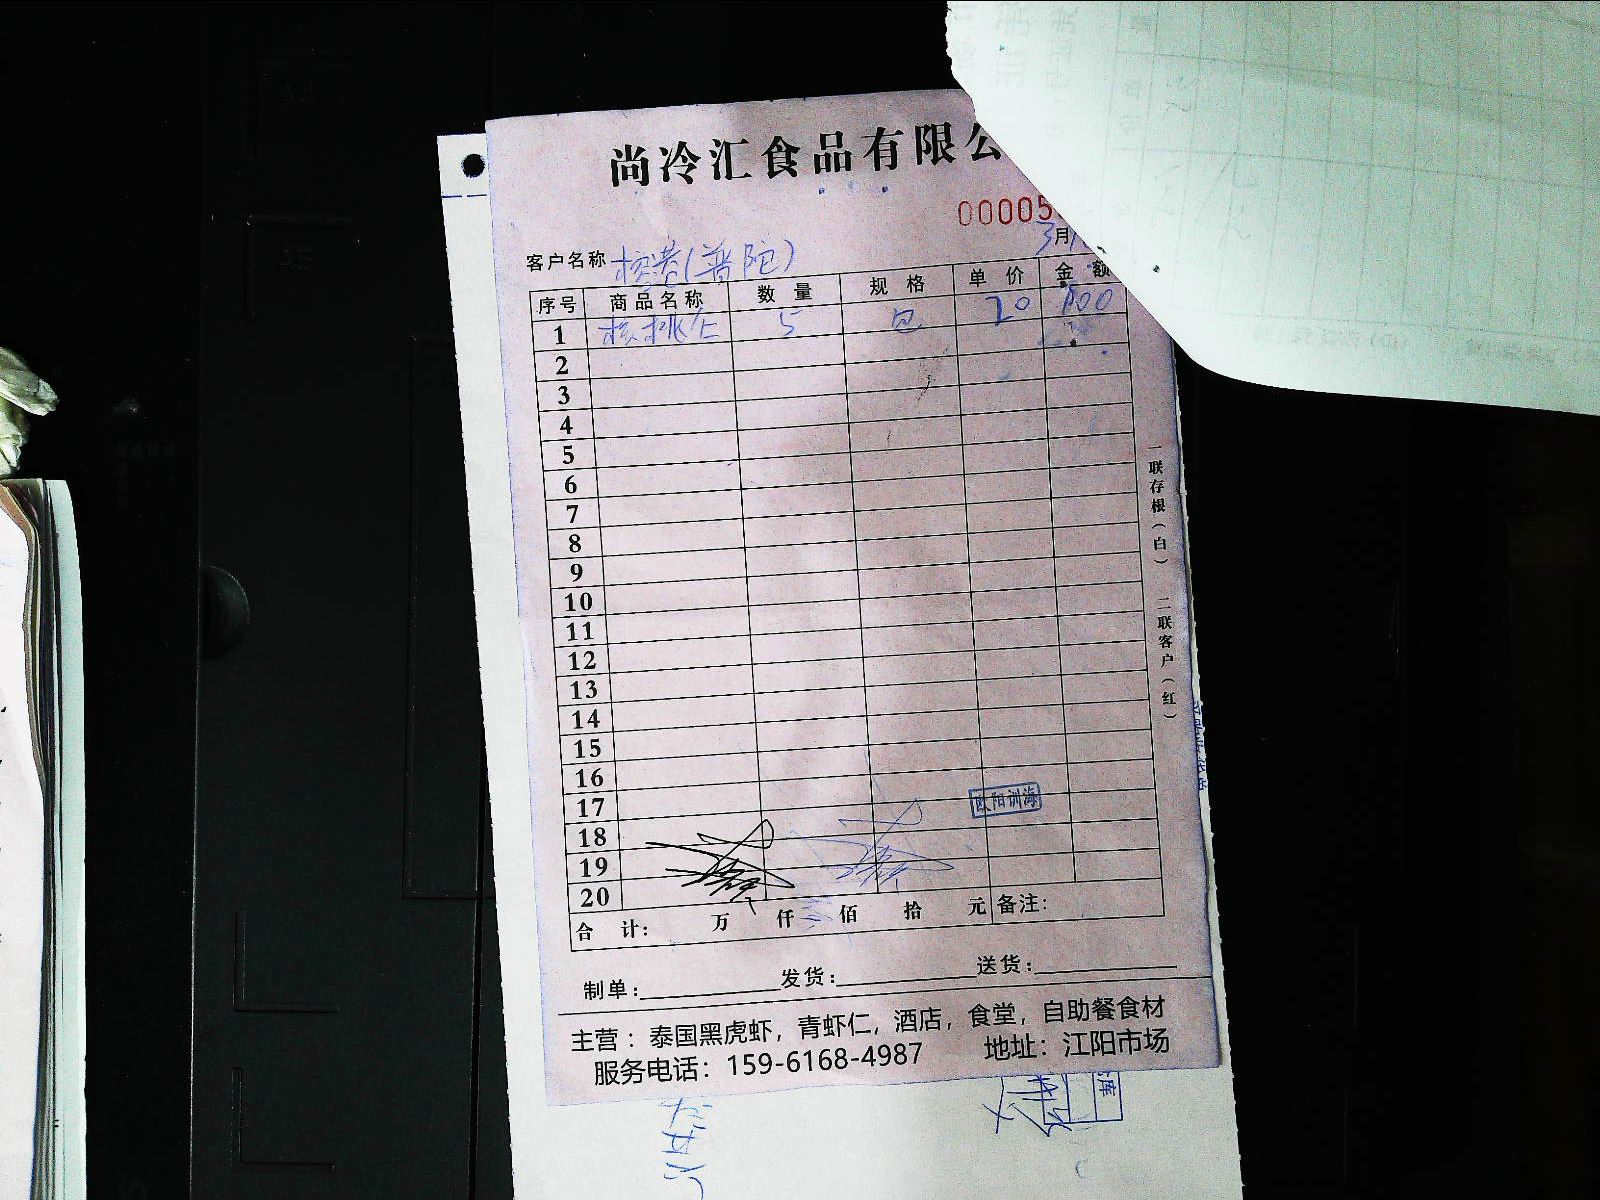 尚冷汇食品有限公
00005
3月
客户名称 (普陀)
序号 商品名称 数量 规格 单价 金额
1 核桃仁 5 包 20 100
2
3
4
5
6
7
8
9
10
11
12
13
14
15
16
17
欧阳训海
18
19
20
合计: 万 仟 佰 拾 元 备注:
制单: 发货: 送货:
主营：泰国黑虎虾，青虾仁，酒店，食堂，自助餐食材
服务电话：159-6168-4987 地址：江阳市场
一联存根(白) 二联客户(红)
库